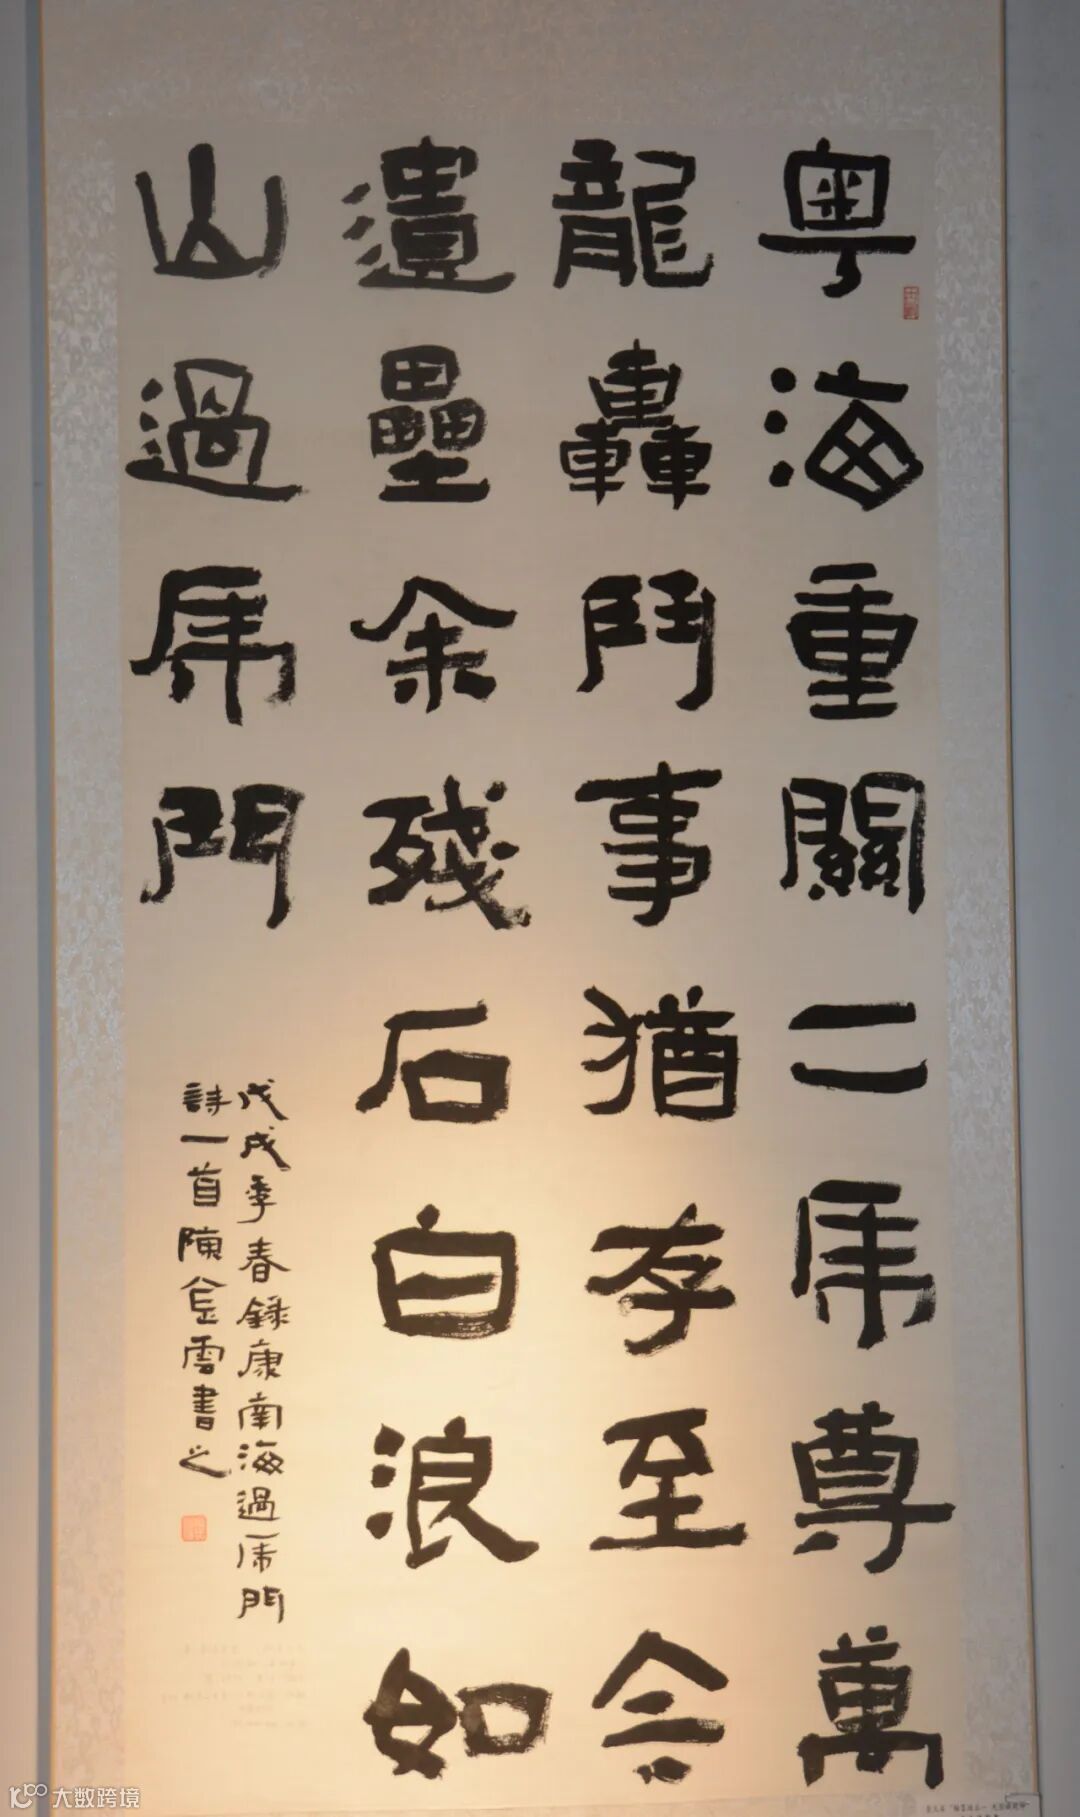 粤海重關二虎尊萬
龍轟鬥事猶存至今
遺壘余殘石白浪如
山過虎門
戊戌季春録康南海過虎門
詩一首陳㑒雲書之
大数跨境